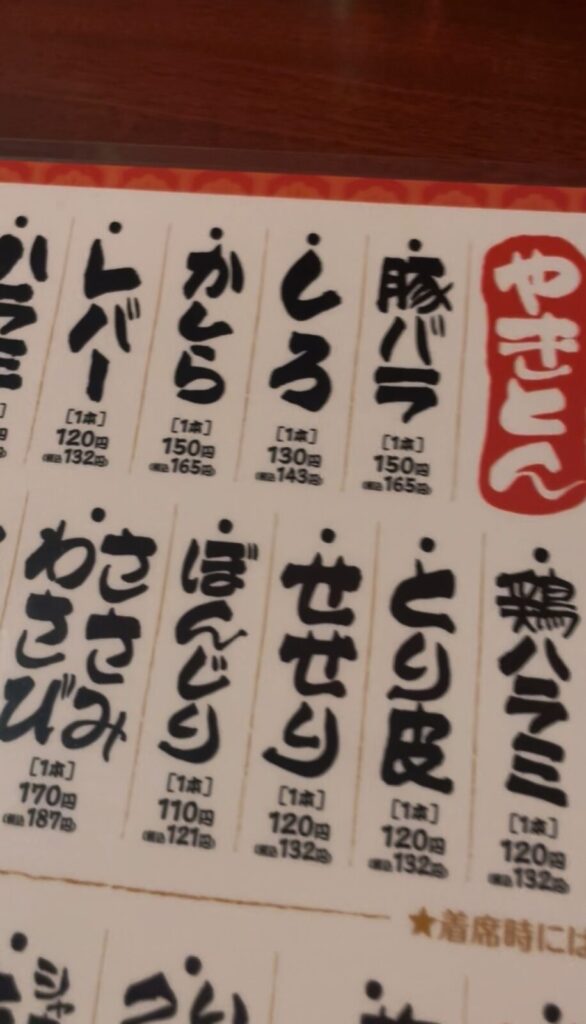 やきとん
豚バラ
[1本]
150円
税込165円
しろ
[1本]
130円
税込143円
かしら
[1本]
150円
税込165円
レバー
[1本]
120円
税込132円
ハラミ
鶏ハラミ
[1本]
120円
税込132円
とり皮
[1本]
120円
税込132円
せせり
[1本]
120円
税込132円
ぼんじり
[1本]
110円
税込121円
ささみ
わさび
[1本]
170円
税込187円
★着席時には